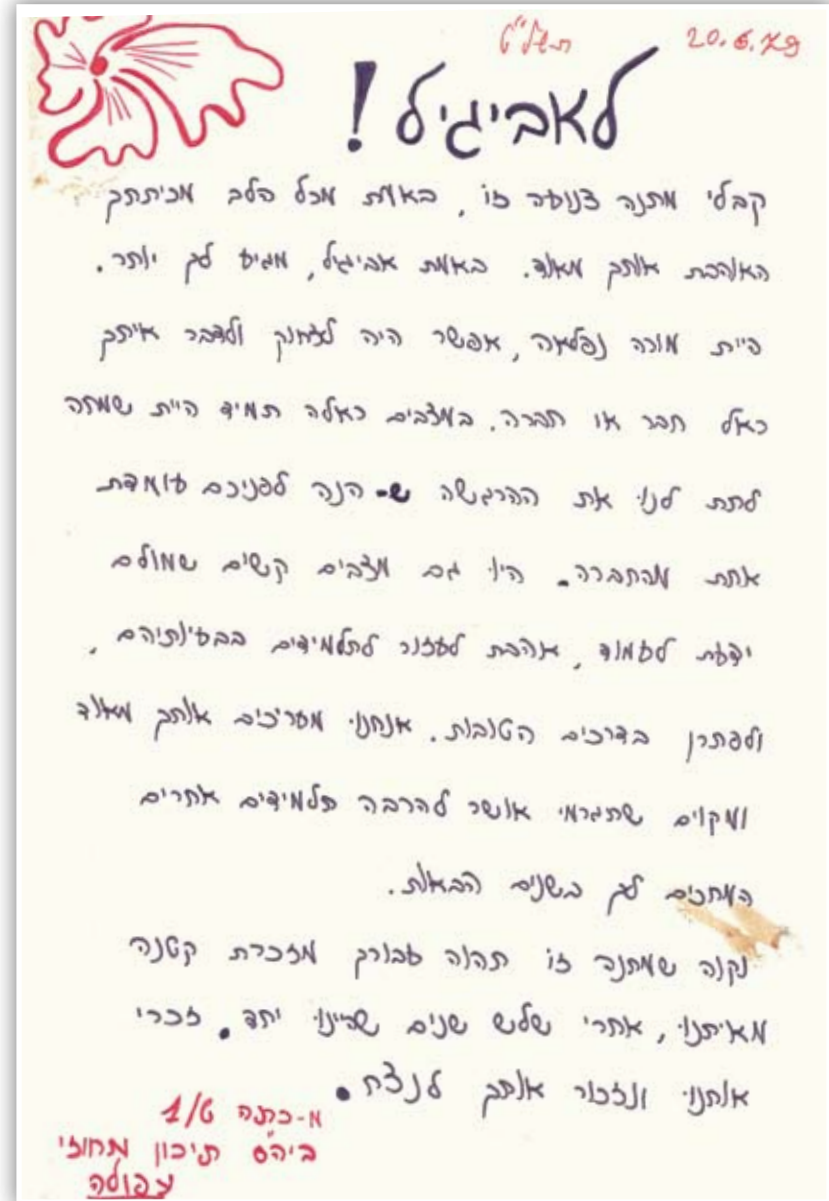 20.6.79 תשל"ט
לאביגיל!
קבלי מתנה צנועה זו, באמת מכל הלב מכיתתך
האוהבת אותך מאוד. באמת אביגיל, מגיע לך יותר.
היית מורה נפלאה, אפשר היה לצחוק ולדבר איתך
כאל חבר או חברה. במצבים כאלה תמיד היית שמחה
לתת לנו את ההרגשה ש- הנה לפניכם עומדת
אחת מהחברה. היו גם מצבים קשים שמולם
ידעת לעמוד, אהבת לעזור לתלמידים בבעיותיהם,
ולפתרן בדרכים הטובות. אנחנו מעריכים אותך מאוד
ומקוים שתגרמי אושר להרבה תלמידים אחרים
המחכים לך בשנים הבאות.
נקוה שמתנה זו תהוה עבורך מזכרת קטנה
מאיתנו, אחרי שלש שנים שהיינו יחד. זכרי
אותנו ונזכור אותך לנצח.
מ-כתה ט/1
ביה"ס תיכון מחוזי
עפולה